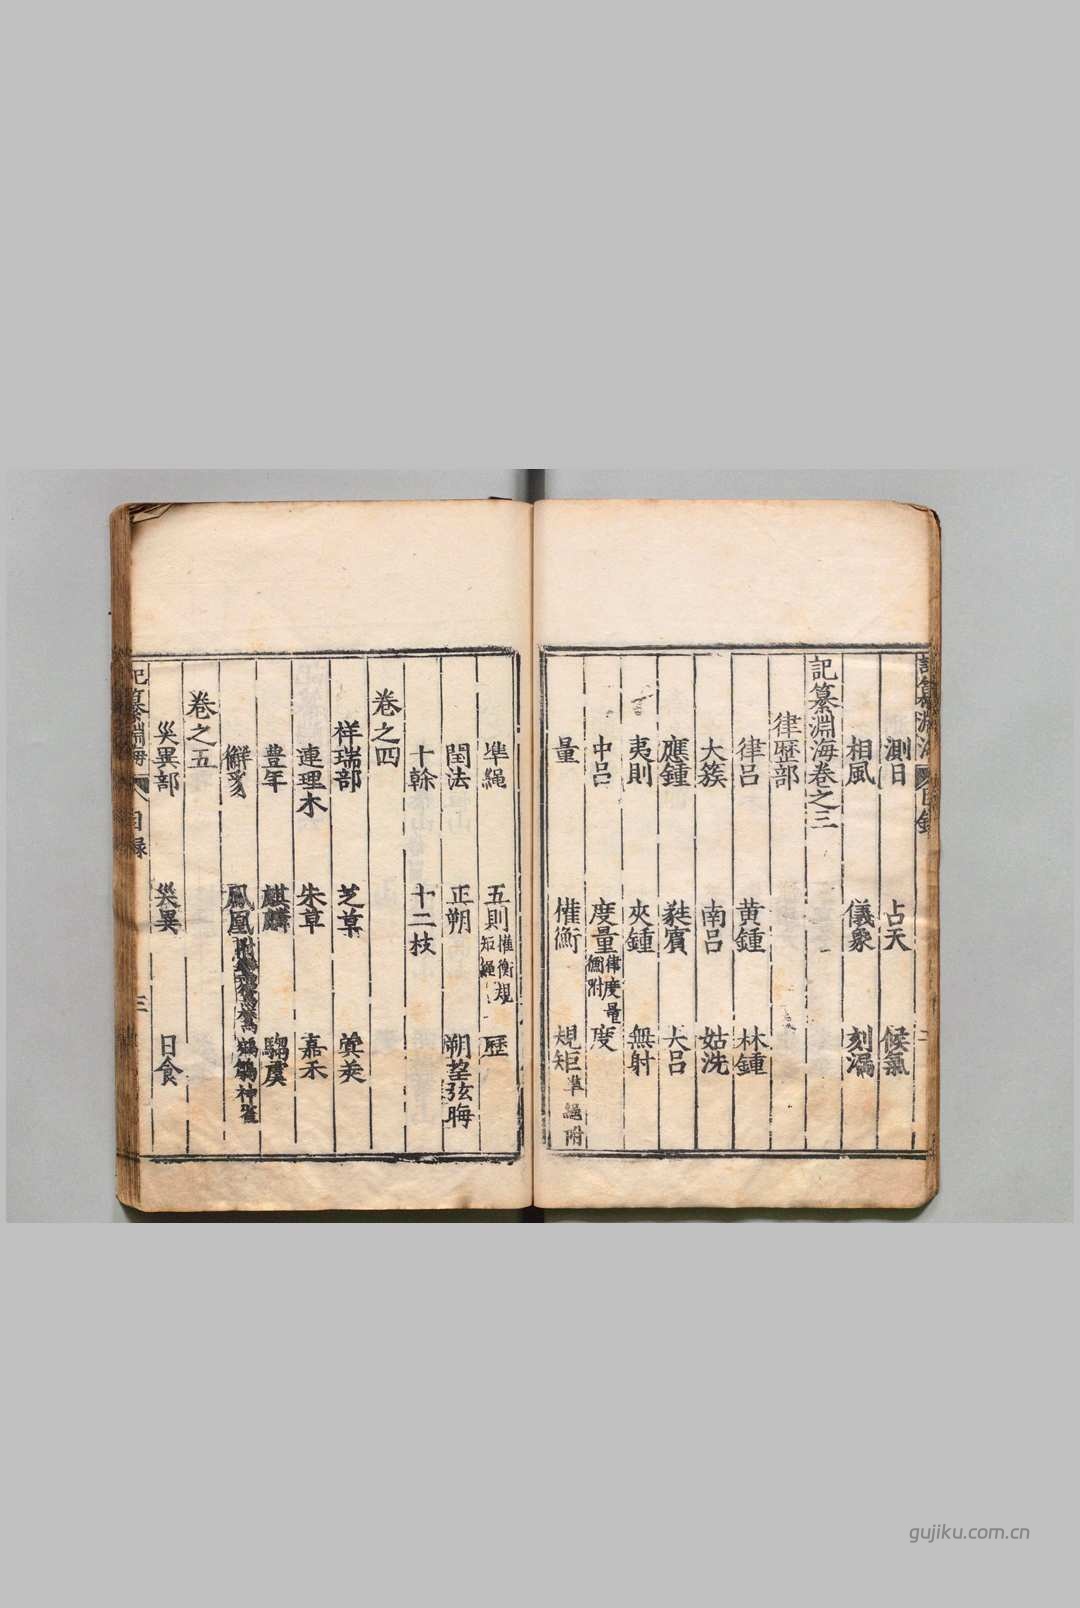 測日 占天 候氣
相風 儀象 刻漏
記纂淵海卷之三
律歷部
律呂 黃鍾 林鍾
大簇 南呂 姑洗
應鍾 蕤賓 大呂
夷則 夾鍾 無射
中呂 度量 律度量衡附 度
量 權衡 規矩 準繩附
準繩 五則 權衡規矩繩 歷
閏法 正朔 朔望弦晦
十榦 十二枝
卷之四
祥瑞部 芝草 蓂莢
連理木 朱草 嘉禾
豊年 麒麟 騶虞
觧豸 鳳凰 神雀
卷之五
災異部 災異 日食
記纂淵海 目録 三
gujiku.com.cn